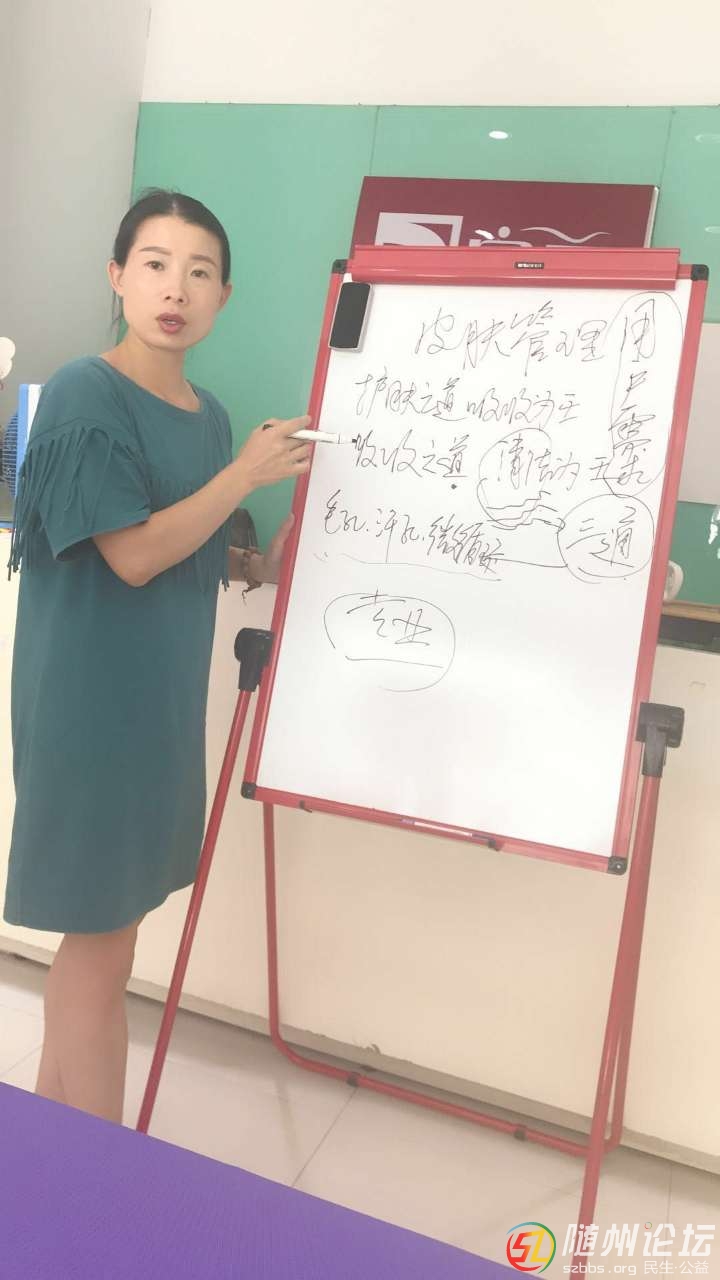 皮肤管理
用户需求
护肤之道 吸收为王
吸收之道 清洁为王
毛孔.汗孔.微循环
三通
专业
随州论坛
szbbs.org 民生·公益